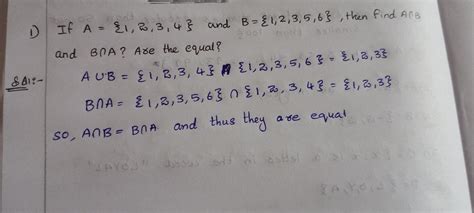 1) If A = {1, 2, 3, 4} and B = {1, 2, 3, 5, 6}, then find A∩B
and B∩A? Are the equal?
Sol:- A ∪ B = {1, 2, 3, 4} ∩ {1, 2, 3, 5, 6} = {1, 2, 3}
B∩A = {1, 2, 3, 5, 6} ∩ {1, 2, 3, 4} = {1, 2, 3}
so, A∩B = B∩A and thus they are equal